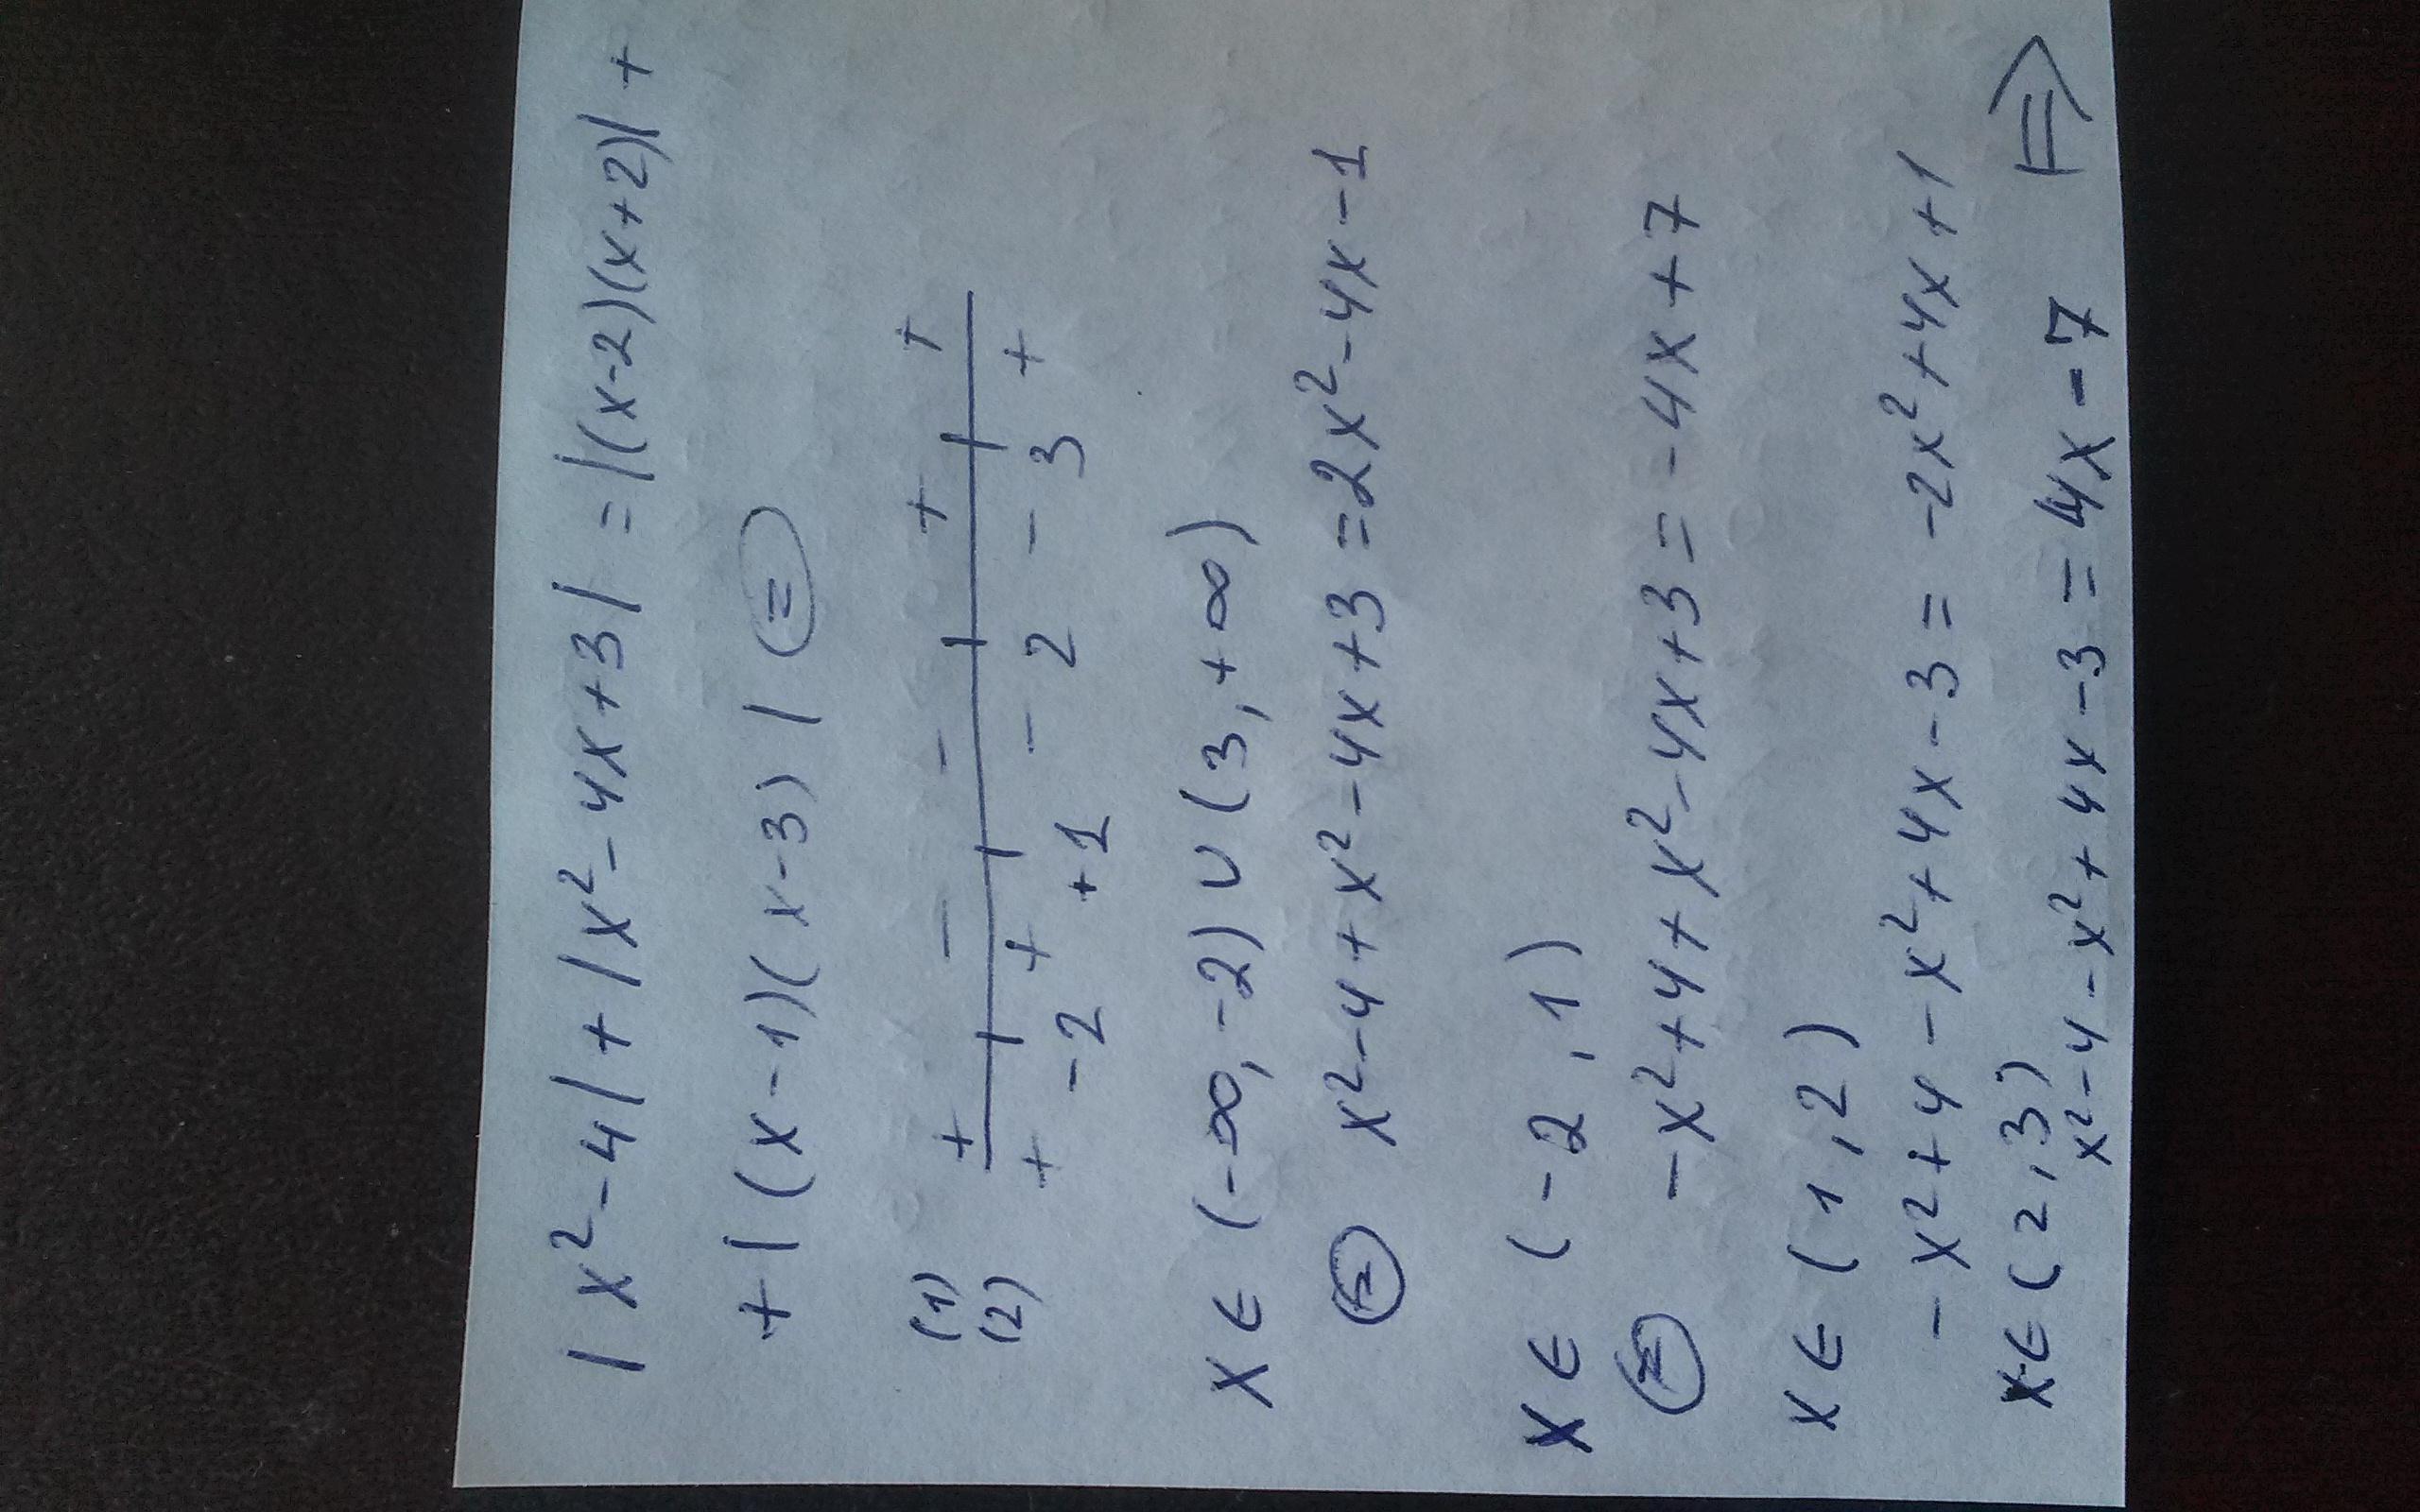 |x²-4|+|x²-4x+3|=|(x-2)(x+2)|+
+|(x-1)(x-3)| (=)
(1) + - - + +
(2) + -2 + +1 - 2 - 3 +
x ∈ (-∞,-2) ∪ (3,+∞)
(=) x²-4+x²-4x+3=2x²-4x-1
x ∈ (-2,1)
(=) -x²+4+x²-4x+3=-4x+7
x ∈ (1,2)
-x²+4-x²+4x-3=-2x²+4x+1
x ∈ (2,3)
x²-4-x²+4x-3=4x-7 |=>